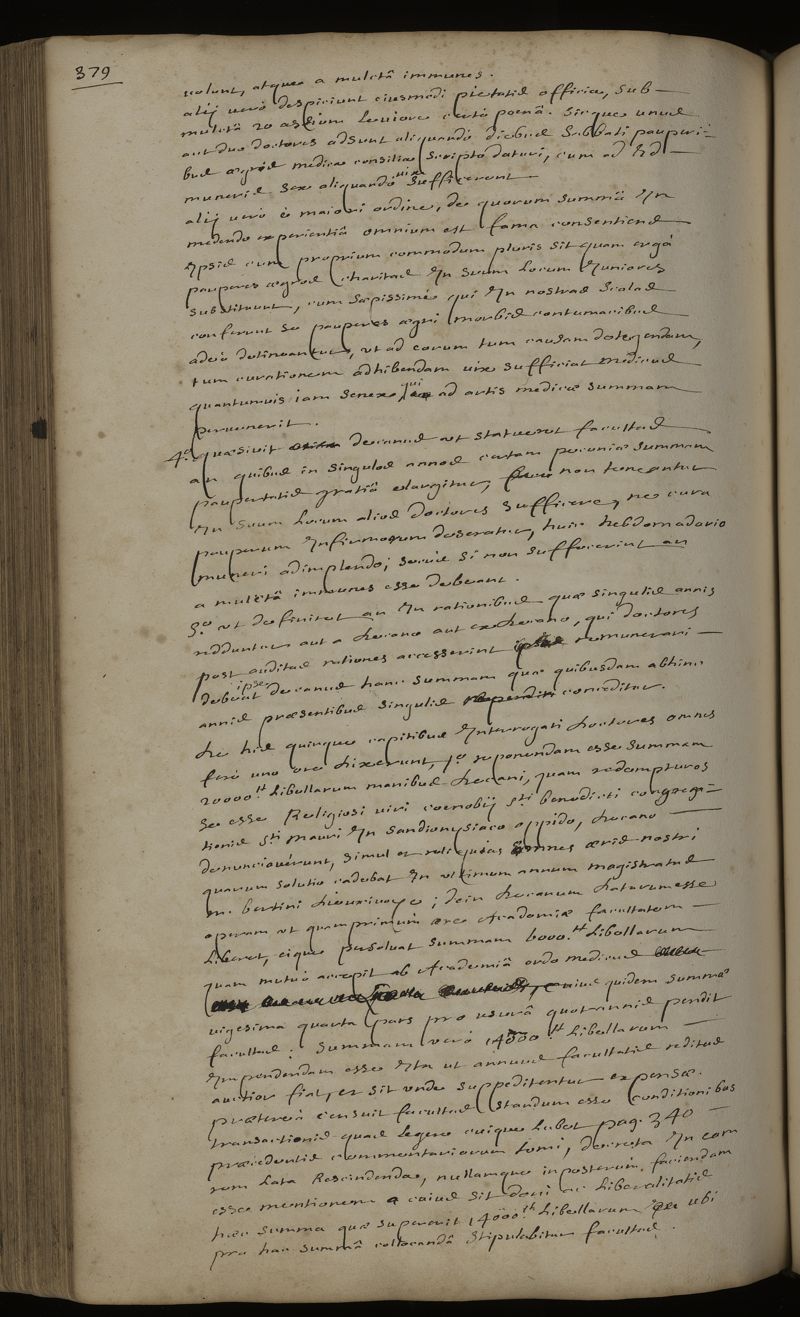 379
uolunt, atque a mulctâ immunes.
alij uerò despiciunt eiusmodi pietatis officia, sub
mulctâ 20 assium leuiore certò poenâ. sicque unus
aut duo doctores adsunt aliquandò diebus sabbati pauperi-
bus ægris medica consilia scripto daturi, cum ad id
muneris sex aliquandò uix sufficerent
alij uerò è maiori ordine, de quorum summâ in
medendo experientiâ omnium est fama consentiens
ipsis cum proprium commodum pluris sit quam ergà
pauperes ægros charitas in suum locum iuniores
substituunt, cum sæpissimè qui in nostras scalas
conferunt se pauperes ægri morbis contumacibus
adeò detineantur, ut ad eorum tum causam detegendam,
tum curationem adhibendam uix sufficiat medicus
quantumuis iam senex, qui ad artis medicæ summam
peruenerit.
4.º quæsiuit decanus ut statueret facultas
an quibus in singulos annos certam pecuniæ summam
paupertatis gratiâ elargitur, non teneantur
in suum locum alios doctores sufficere, ne cura
pauperum infirmorum deseratur, huic hebdomadario
muneri adimplendo; secùs si non suffecerint an
a mulctâ immunes esse debeant.
5.º ut definiret an in rationibus quæ singulis annis
redduntur aut a decano aut exdecano, qui doctores
post auditas rationes accesserint remunerari
debeat ipse decanus hanc summam quæ quibusdam abhinc
annis præsentibus singulis conceditur.
de his quinque capitibus interrogati doctores omnes
ferè uno ore dixerunt, 1.º reponendam esse summam
20000.tt libellarum manibus decani, quam redempturos
se esse Religiosi uiri coenobij sti benedicti congrega-
tionis sti mauri in sandionysiaco oppido, decano
denunciauerunt, simul et reliquias omnes æris nostri
quarum solutio cadebat in ultimum annum magistratus
m. bertini dieuxiuoye; dein decanum daturum esse
operam ut quamprimùm ære Academiæ facultatem
liberet, eique persoluat summam 6000.tt libellarum
quam mutuò accepit ab Academiâ ordo medicus
cuius quidem summæ
uigesima quarta pars pro usurâ quotannis pendit
facultas; summam uerò 14000.tt libellarum
impendendam esse ita ut annuus facultatis reditus
auctior fiat, et sit unde suppeditentur expensæ.
prætereà censuit facultas standum esse conditionibus
transactionis quas legere cuique lubet pag. 340
præcedentis commentariorum tomi, decreta in eam
rem lata rescindenda, nullamque inposterùm faciendam
esse mentionem cuius sit doni ac liberalitatis
hæc summa quæ supererit 14000.tt libellarum ubi
pro hac summâ collocandâ stipulabitur facultas.